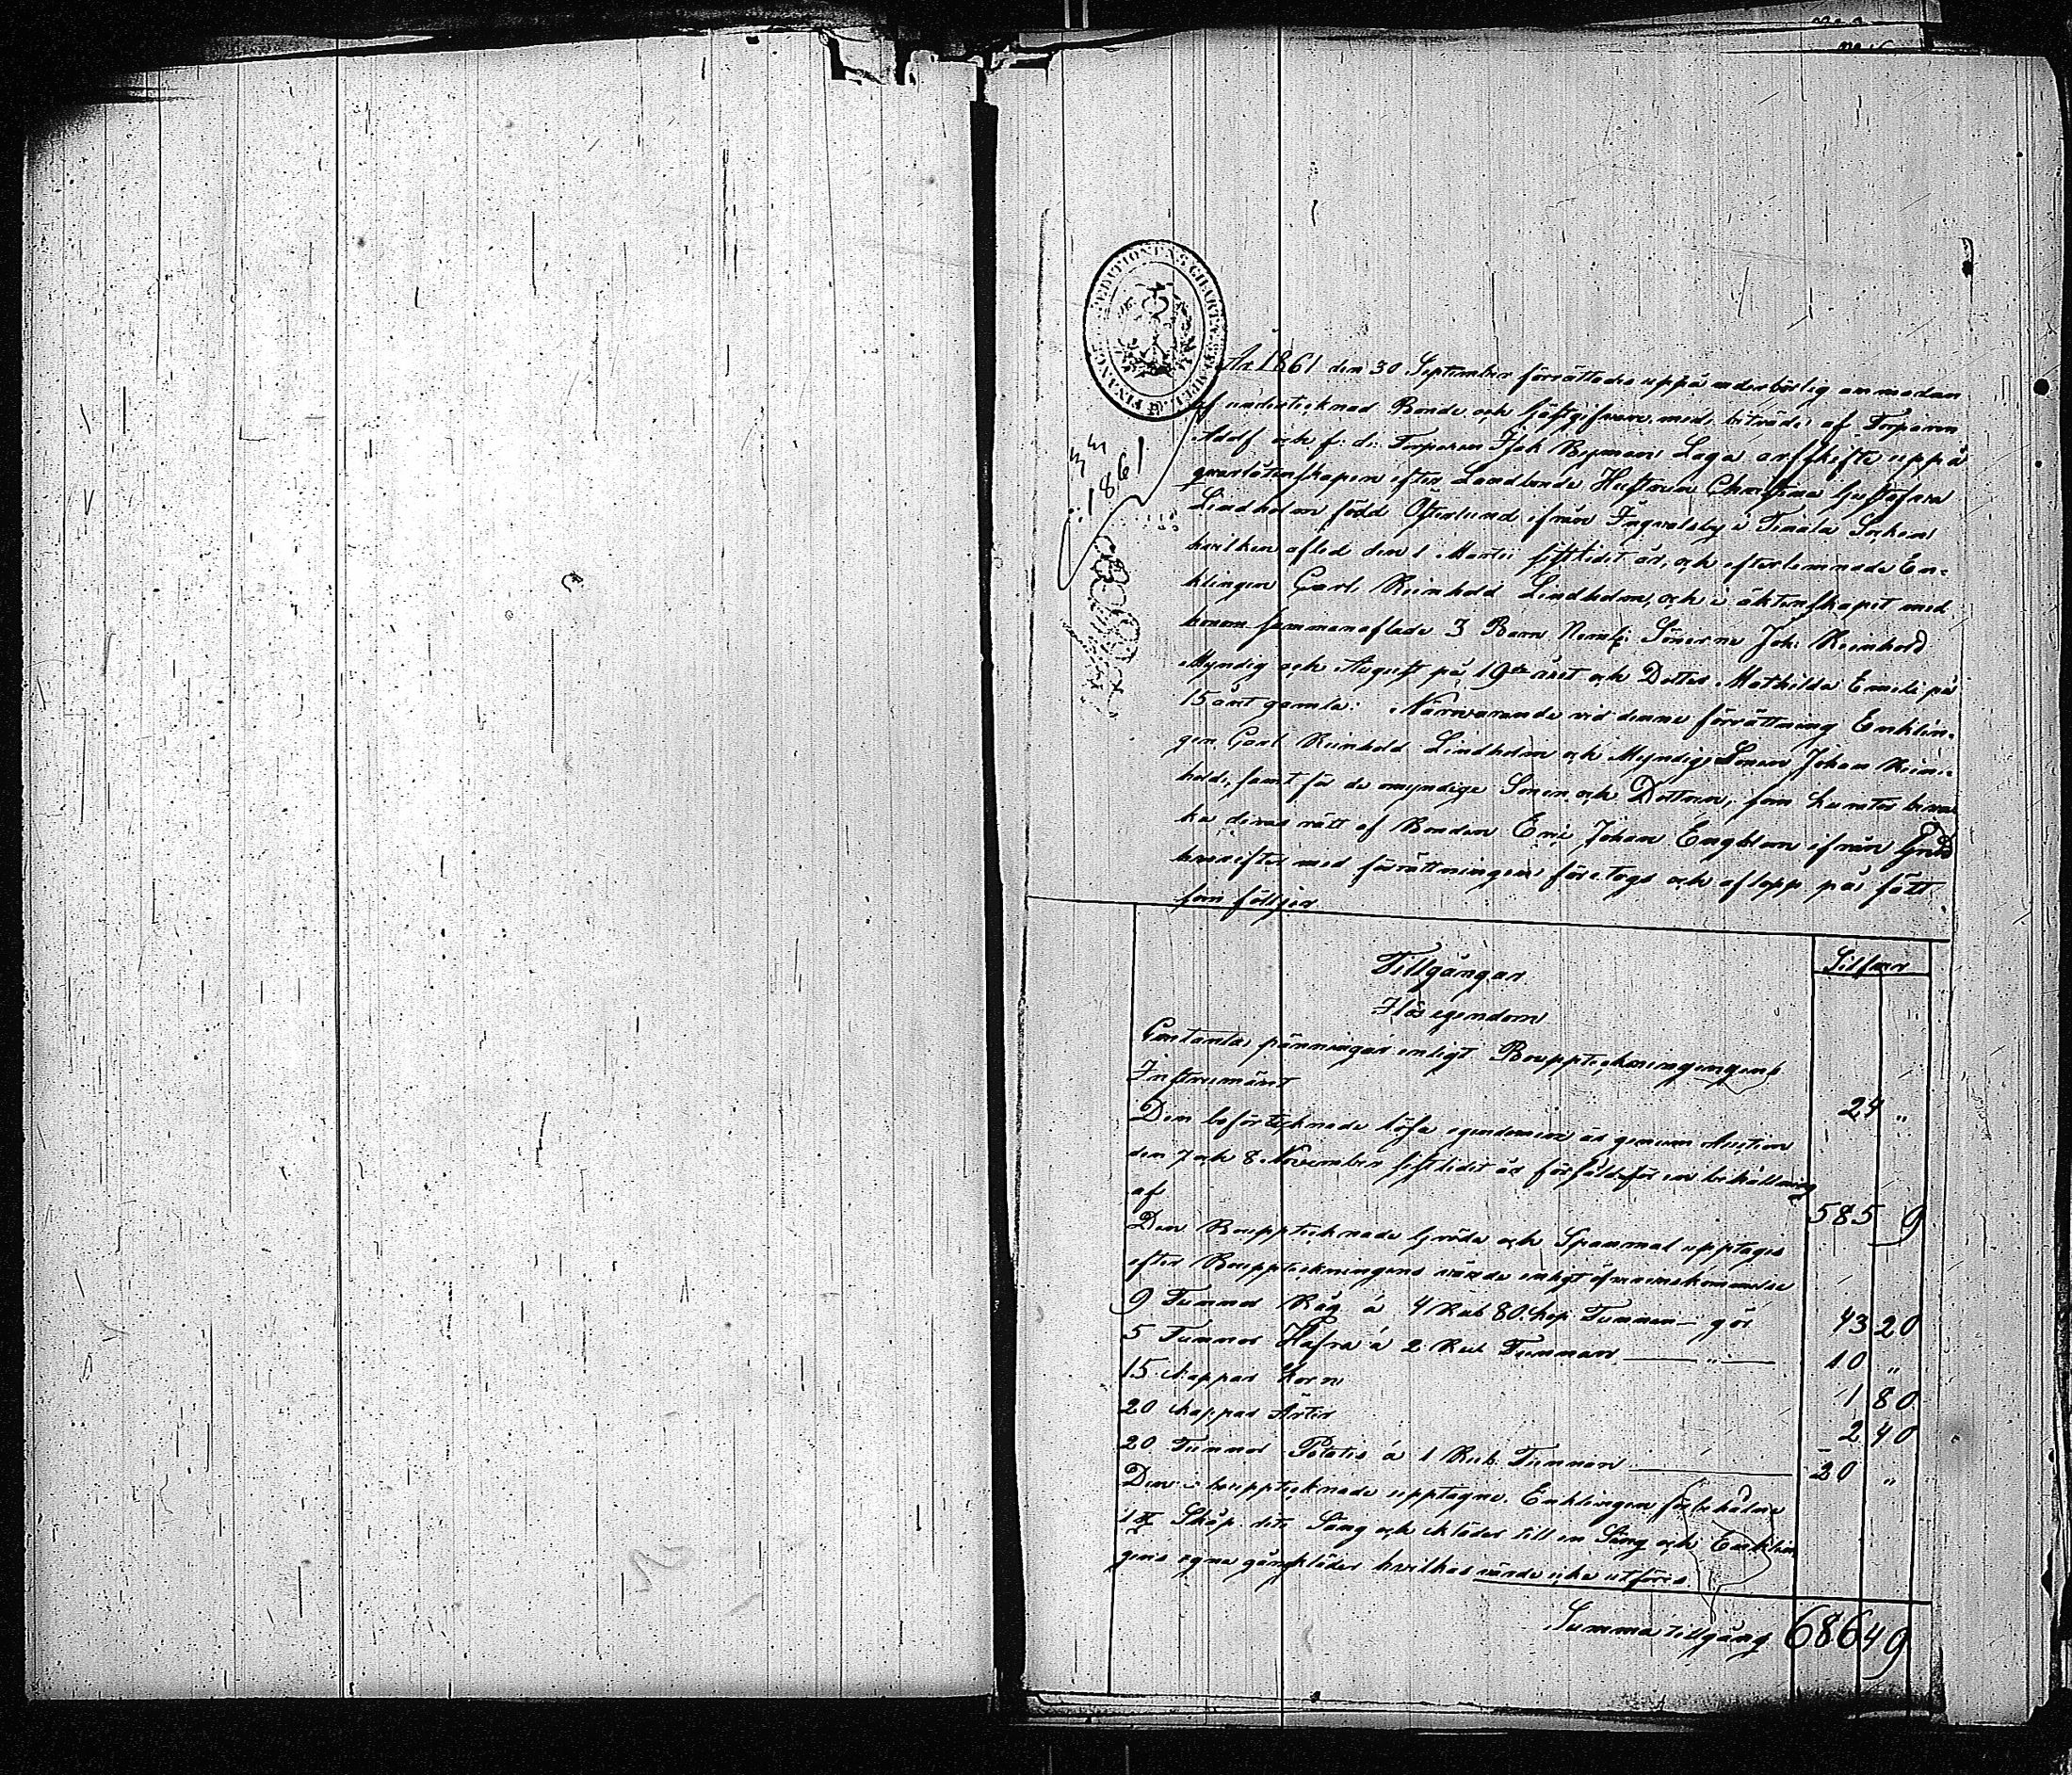 FINANCE EXPEDITIONENS CHARTÆ SIGILL.
1861
År 1861 den 30 September förrättades uppå wederbörlig anmodan
af undertecknad Bonde och Gästgifvare med biträde af Torparen
Adolf och f: d: Torparen Isak Byman Laga arfskifte uppå
qvarlåtenskapen efter Landbonde Hustrun Christina Gustafva
Lindholm född Österlund ifrån Ingvalsby i Tenala Socken
hvilken afled den 1 Martii sistledit år, och efterlemnade En-
klingen Carl Reinhold Lindholm, och i äktenskapet med
honom sammanaflade 3 Barn Neml: Sönerne Joh: Reinhold
Myndig och August på 19de året och Dotter Mathilda Emeli på
15 året gamla: Närwarande vid denna förrättning Enklin-
gen Carl Reinhold Lindholm och Myndige Sonen Johan Rein-
hold, samt för de omyndige Sonen och Dottren, som Kurator beva-
ka deras rätt af Bonden Eric Johan Engblom ifrån
hvarefter med förrättningen företogs och aflopp på sätt
som följer
Tillgångar
Silfver
I lös egendom
Contanta pänningar enligt Bouppteckningens
Instrumänt
24 "
Den boförtecknade lösa egendomen är genom Auction
den 7 och 8 November sistledit år försåld för en behållning
af
585 9
Den Bouppteknade Gröda och Spanmål upptages
efter Bouppteckningens värde enligt öfverenskommelse
9 Tunnor Råg á 4 Rub 80 kop Tunnan gör 43 20
5 Tunnor Hafra á 2 Rub Tunnan " 10 "
15 kappar korn 1 80
20 kappar Ärter 2 40
20 Tunnor Potatis á 1 Rub. Tunnan 20 "
Den i boupptecknade upptagne. Enklingen förbehålne
Skåp dito Säng och kläder till en Säng och Enklin
gens egna gångkläder hvilkas värde icke utföres
Summa tillgång 686 49